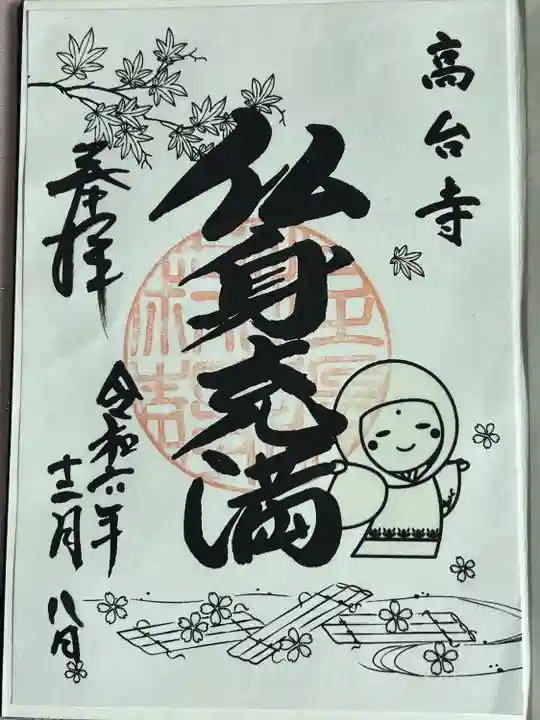 高台寺
仏身充満
奉拝
令和六年
十二月
八日